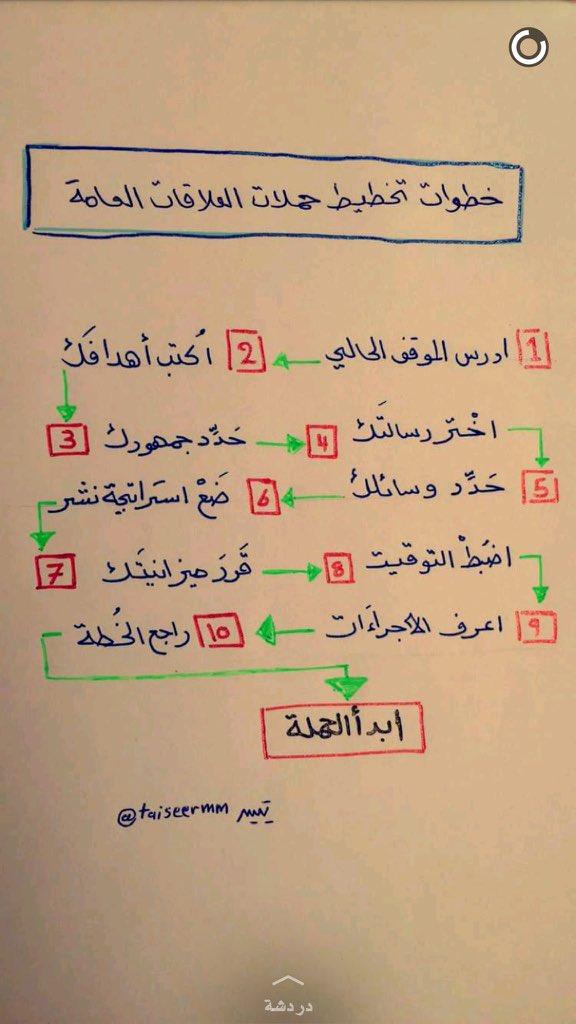 خطوات تخطيط حملات العلاقات العامة
1 ادرس الموقف الحالي
2 اُكتب أهدافَك
3 حَدِّد جمهورك
4 اخْتر رسالتَك
5 حَدِّد وسائلكُ
6 ضَعْ استراتجية نشر
7 قَررَ ميزانيتَك
8 اضبَطْ التوقيت
9 اعرف الأجراءَات
10 راجع الخُطة
أبدأ الحملة
@taiseermm تيسير
دردشة